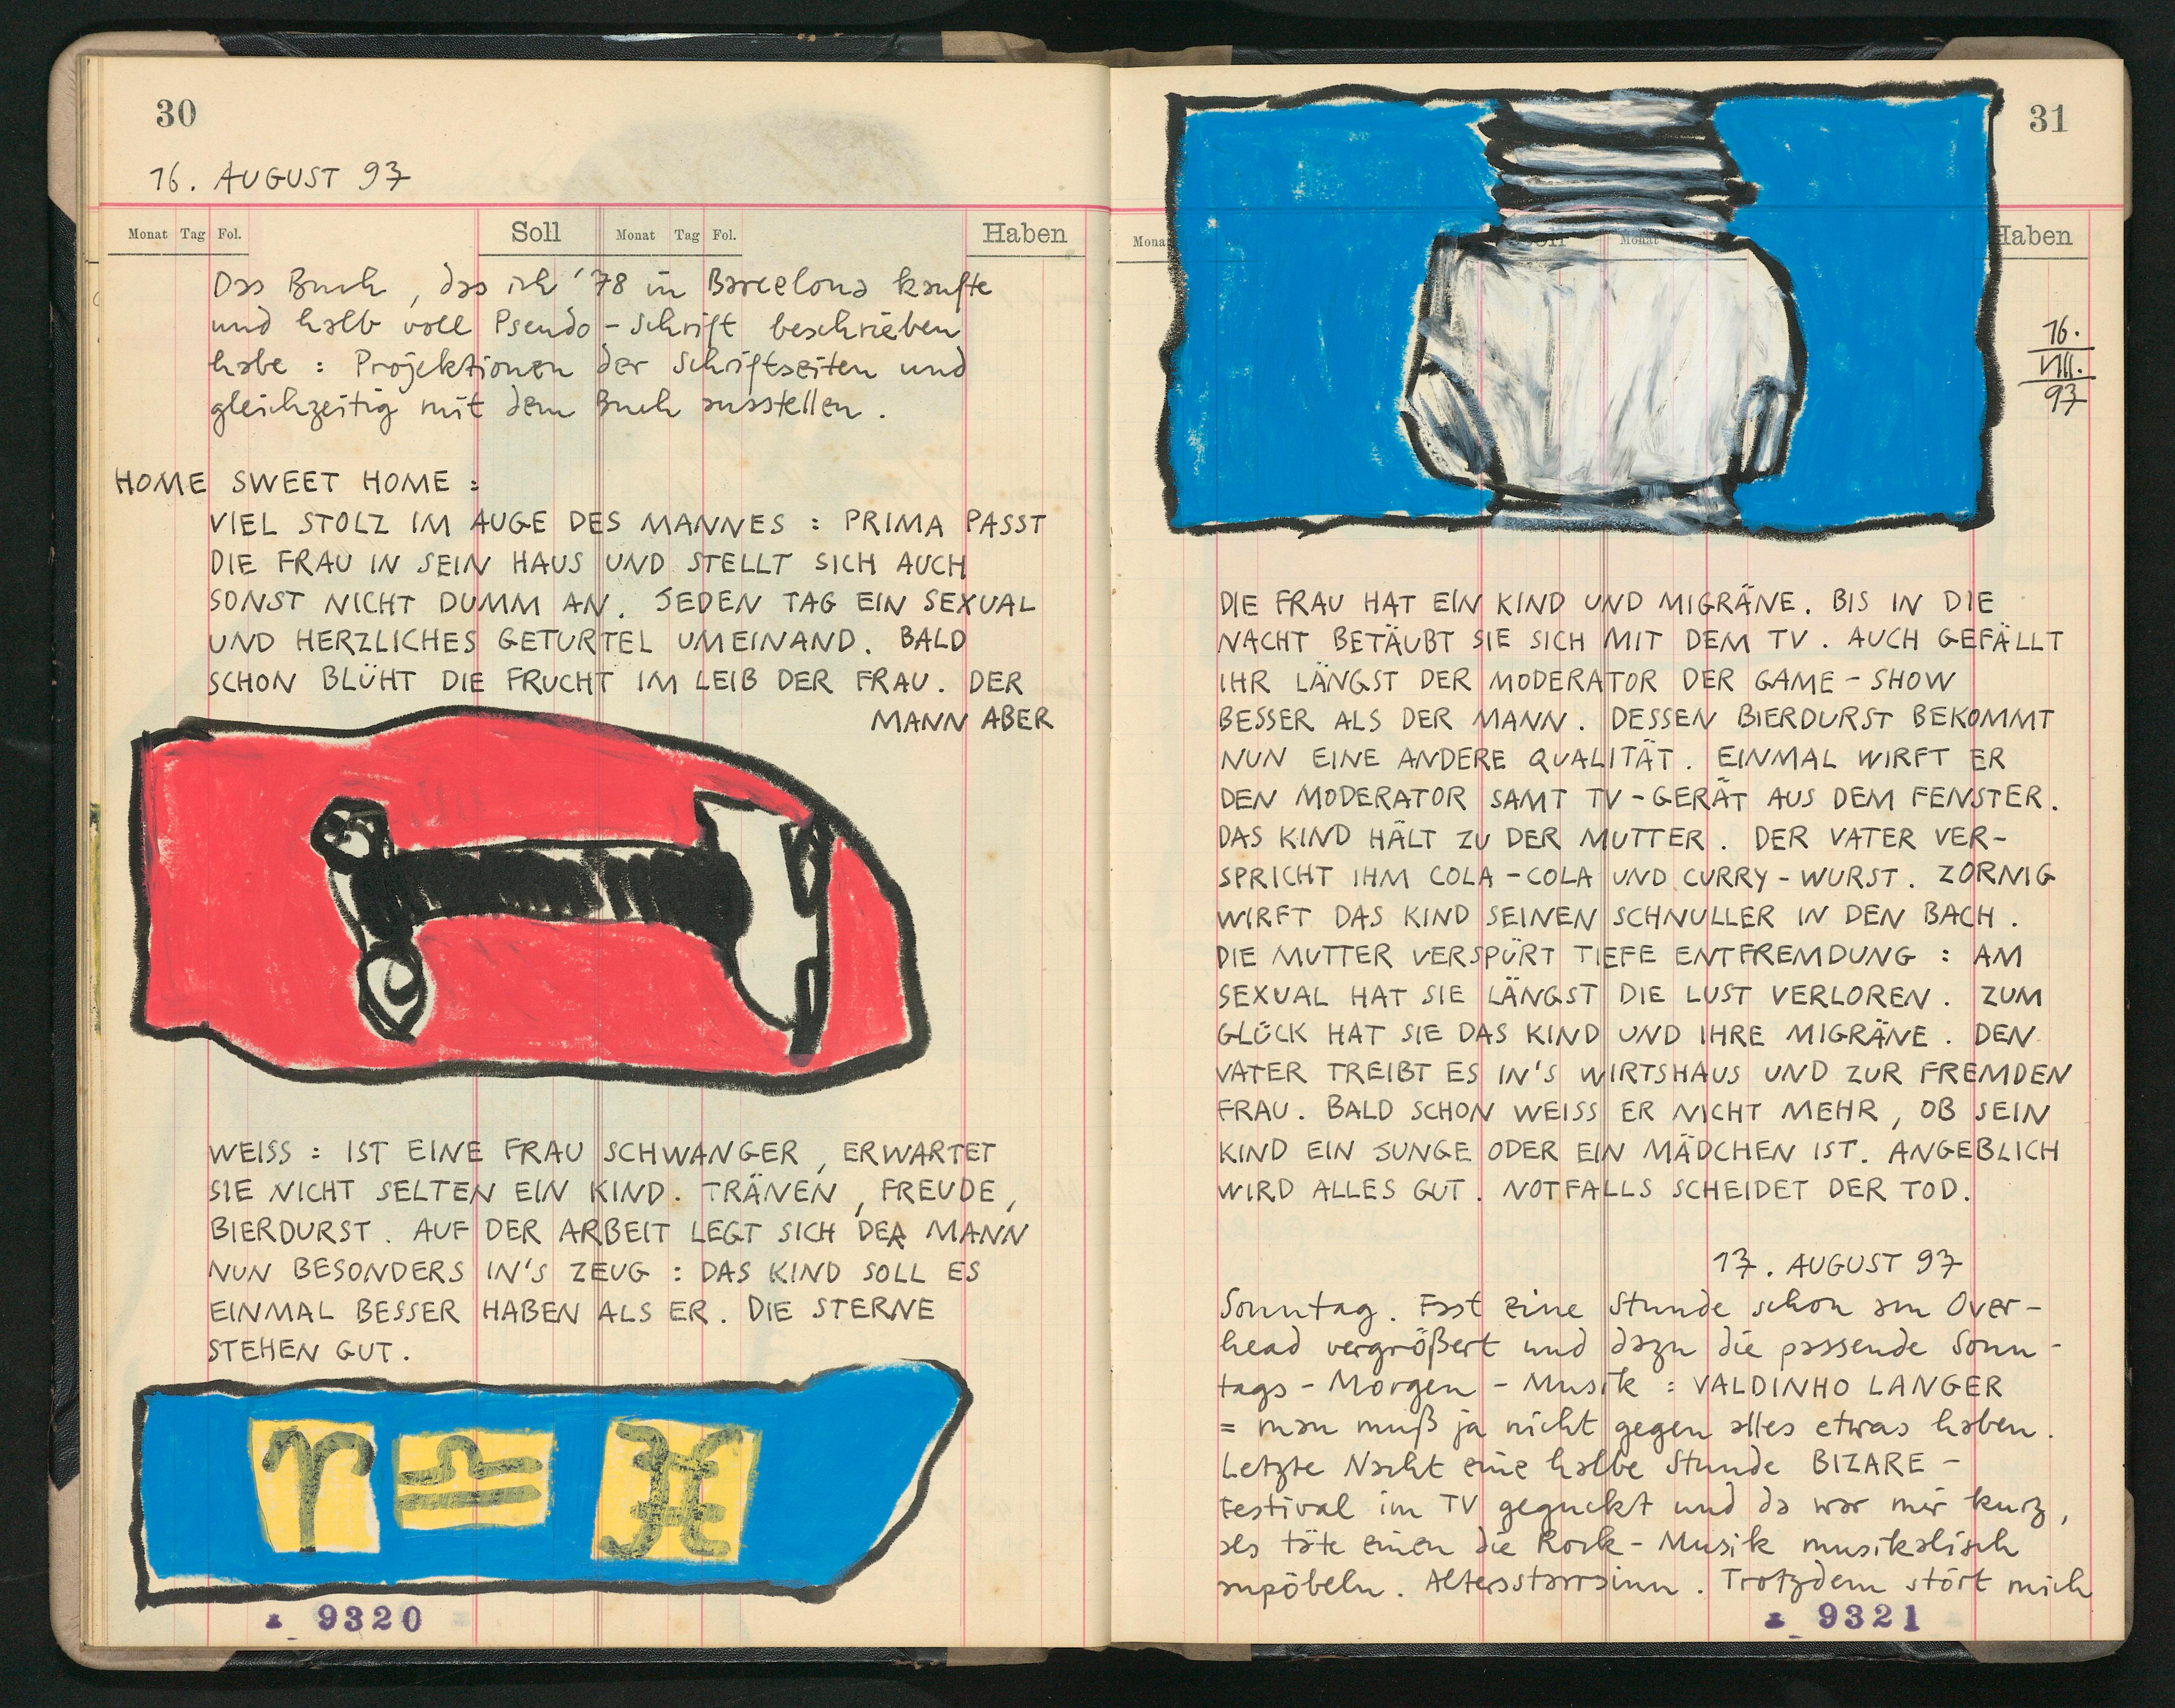 30
16. AUGUST 97
Monat Tag Fol. Soll Monat Tag Fol. Haben
Das Buch, das ich '78 in Barcelona kaufte
und halb voll Pseudo-Schrift beschrieben
habe : Projektionen der Schriftseiten und
gleichzeitig mit dem Buch ausstellen.
HOME SWEET HOME :
VIEL STOLZ IM AUGE DES MANNES : PRIMA PASST
DIE FRAU IN SEIN HAUS UND STELLT SICH AUCH
SONST NICHT DUMM AN. JEDEN TAG EIN SEXUAL
UND HERZLICHES GETURTEL UMEINAND. BALD
SCHON BLÜHT DIE FRUCHT IM LEIB DER FRAU. DER
MANN ABER
WEISS : IST EINE FRAU SCHWANGER, ERWARTET
SIE NICHT SELTEN EIN KIND. TRÄNEN, FREUDE,
BIERDURST. AUF DER ARBEIT LEGT SICH DER MANN
NUN BESONDERS IN'S ZEUG : DAS KIND SOLL ES
EINMAL BESSER HABEN ALS ER. DIE STERNE
STEHEN GUT.
♈ ♎ ♓
9320
31
Monat Haben
16.
VIII.
97
DIE FRAU HAT EIN KIND UND MIGRÄNE. BIS IN DIE
NACHT BETÄUBT SIE SICH MIT DEM TV. AUCH GEFÄLLT
IHR LÄNGST DER MODERATOR DER GAME-SHOW
BESSER ALS DER MANN. DESSEN BIERDURST BEKOMMT
NUN EINE ANDERE QUALITÄT. EINMAL WIRFT ER
DEN MODERATOR SAMT TV-GERÄT AUS DEM FENSTER.
DAS KIND HÄLT ZU DER MUTTER. DER VATER VER-
SPRICHT IHM COLA-COLA UND CURRY-WURST. ZORNIG
WIRFT DAS KIND SEINEN SCHNULLER IN DEN BACH.
DIE MUTTER VERSPÜRT TIEFE ENTFREMDUNG : AM
SEXUAL HAT SIE LÄNGST DIE LUST VERLOREN. ZUM
GLÜCK HAT SIE DAS KIND UND IHRE MIGRÄNE. DEN
VATER TREIBT ES IN'S WIRTSHAUS UND ZUR FREMDEN
FRAU. BALD SCHON WEISS ER NICHT MEHR, OB SEIN
KIND EIN JUNGE ODER EIN MÄDCHEN IST. ANGEBLICH
WIRD ALLES GUT. NOTFALLS SCHEIDET DER TOD.
17. AUGUST 97
Sonntag. Fast eine Stunde schon am Over-
head vergrößert und dazu die passende Sonn-
tags-Morgen-Musik : VALDINHO LANGER
= man muß ja nicht gegen alles etwas haben.
Letzte Nacht eine halbe Stunde BIZARE-
Festival im TV geguckt und da war mir kurz,
als täte einen die Rock-Musik musikalisch
anpöbeln. Altersstarrsinn. Trotzdem stört mich
9321